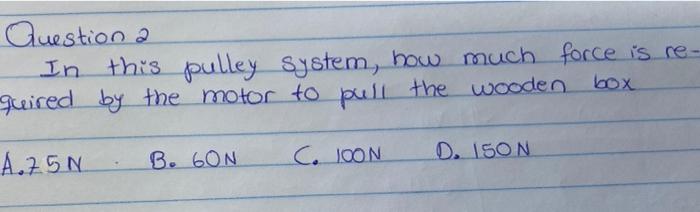 Question 2
In this pulley system, how much force is re-
quired by the motor to pull the wooden box
A. 75N . B. 60N C. 100N D. 150N